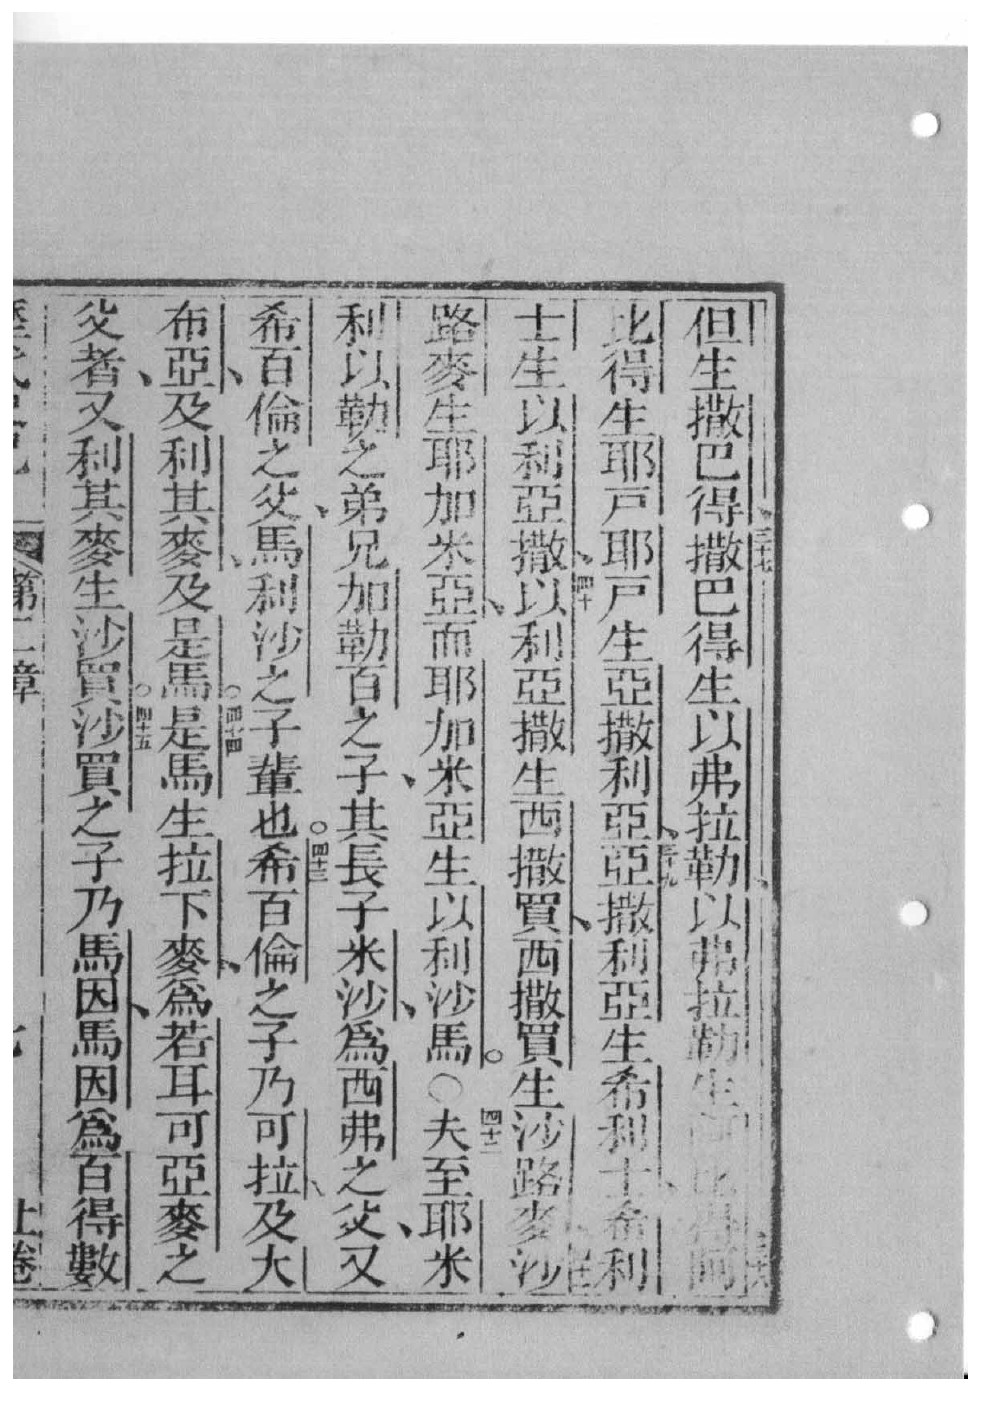 但生撒巴得撒巴得生以弗拉勒以弗拉勒生阿比得阿
三十七
三十八
比得生耶戸耶戸生亞撒利亞亞撒利亞生希利士希利
三十九
士生以利亞撒以利亞撒生西撒買西撒買生沙路麥沙
四十
路麥生耶加米亞而耶加米亞生以利沙馬○夫至耶米
四十二
利以勒之弟兄加勒百之子其長子米沙爲西弗之父又
希百倫之父馬利沙之子輩也希百倫之子乃可拉及大
四十三
布亞及利其麥及是馬是馬生拉下麥爲若耳可亞麥之
四十四
父者又利其麥生沙買沙買之子乃馬因馬因爲百得數
四十五
第二章
上卷